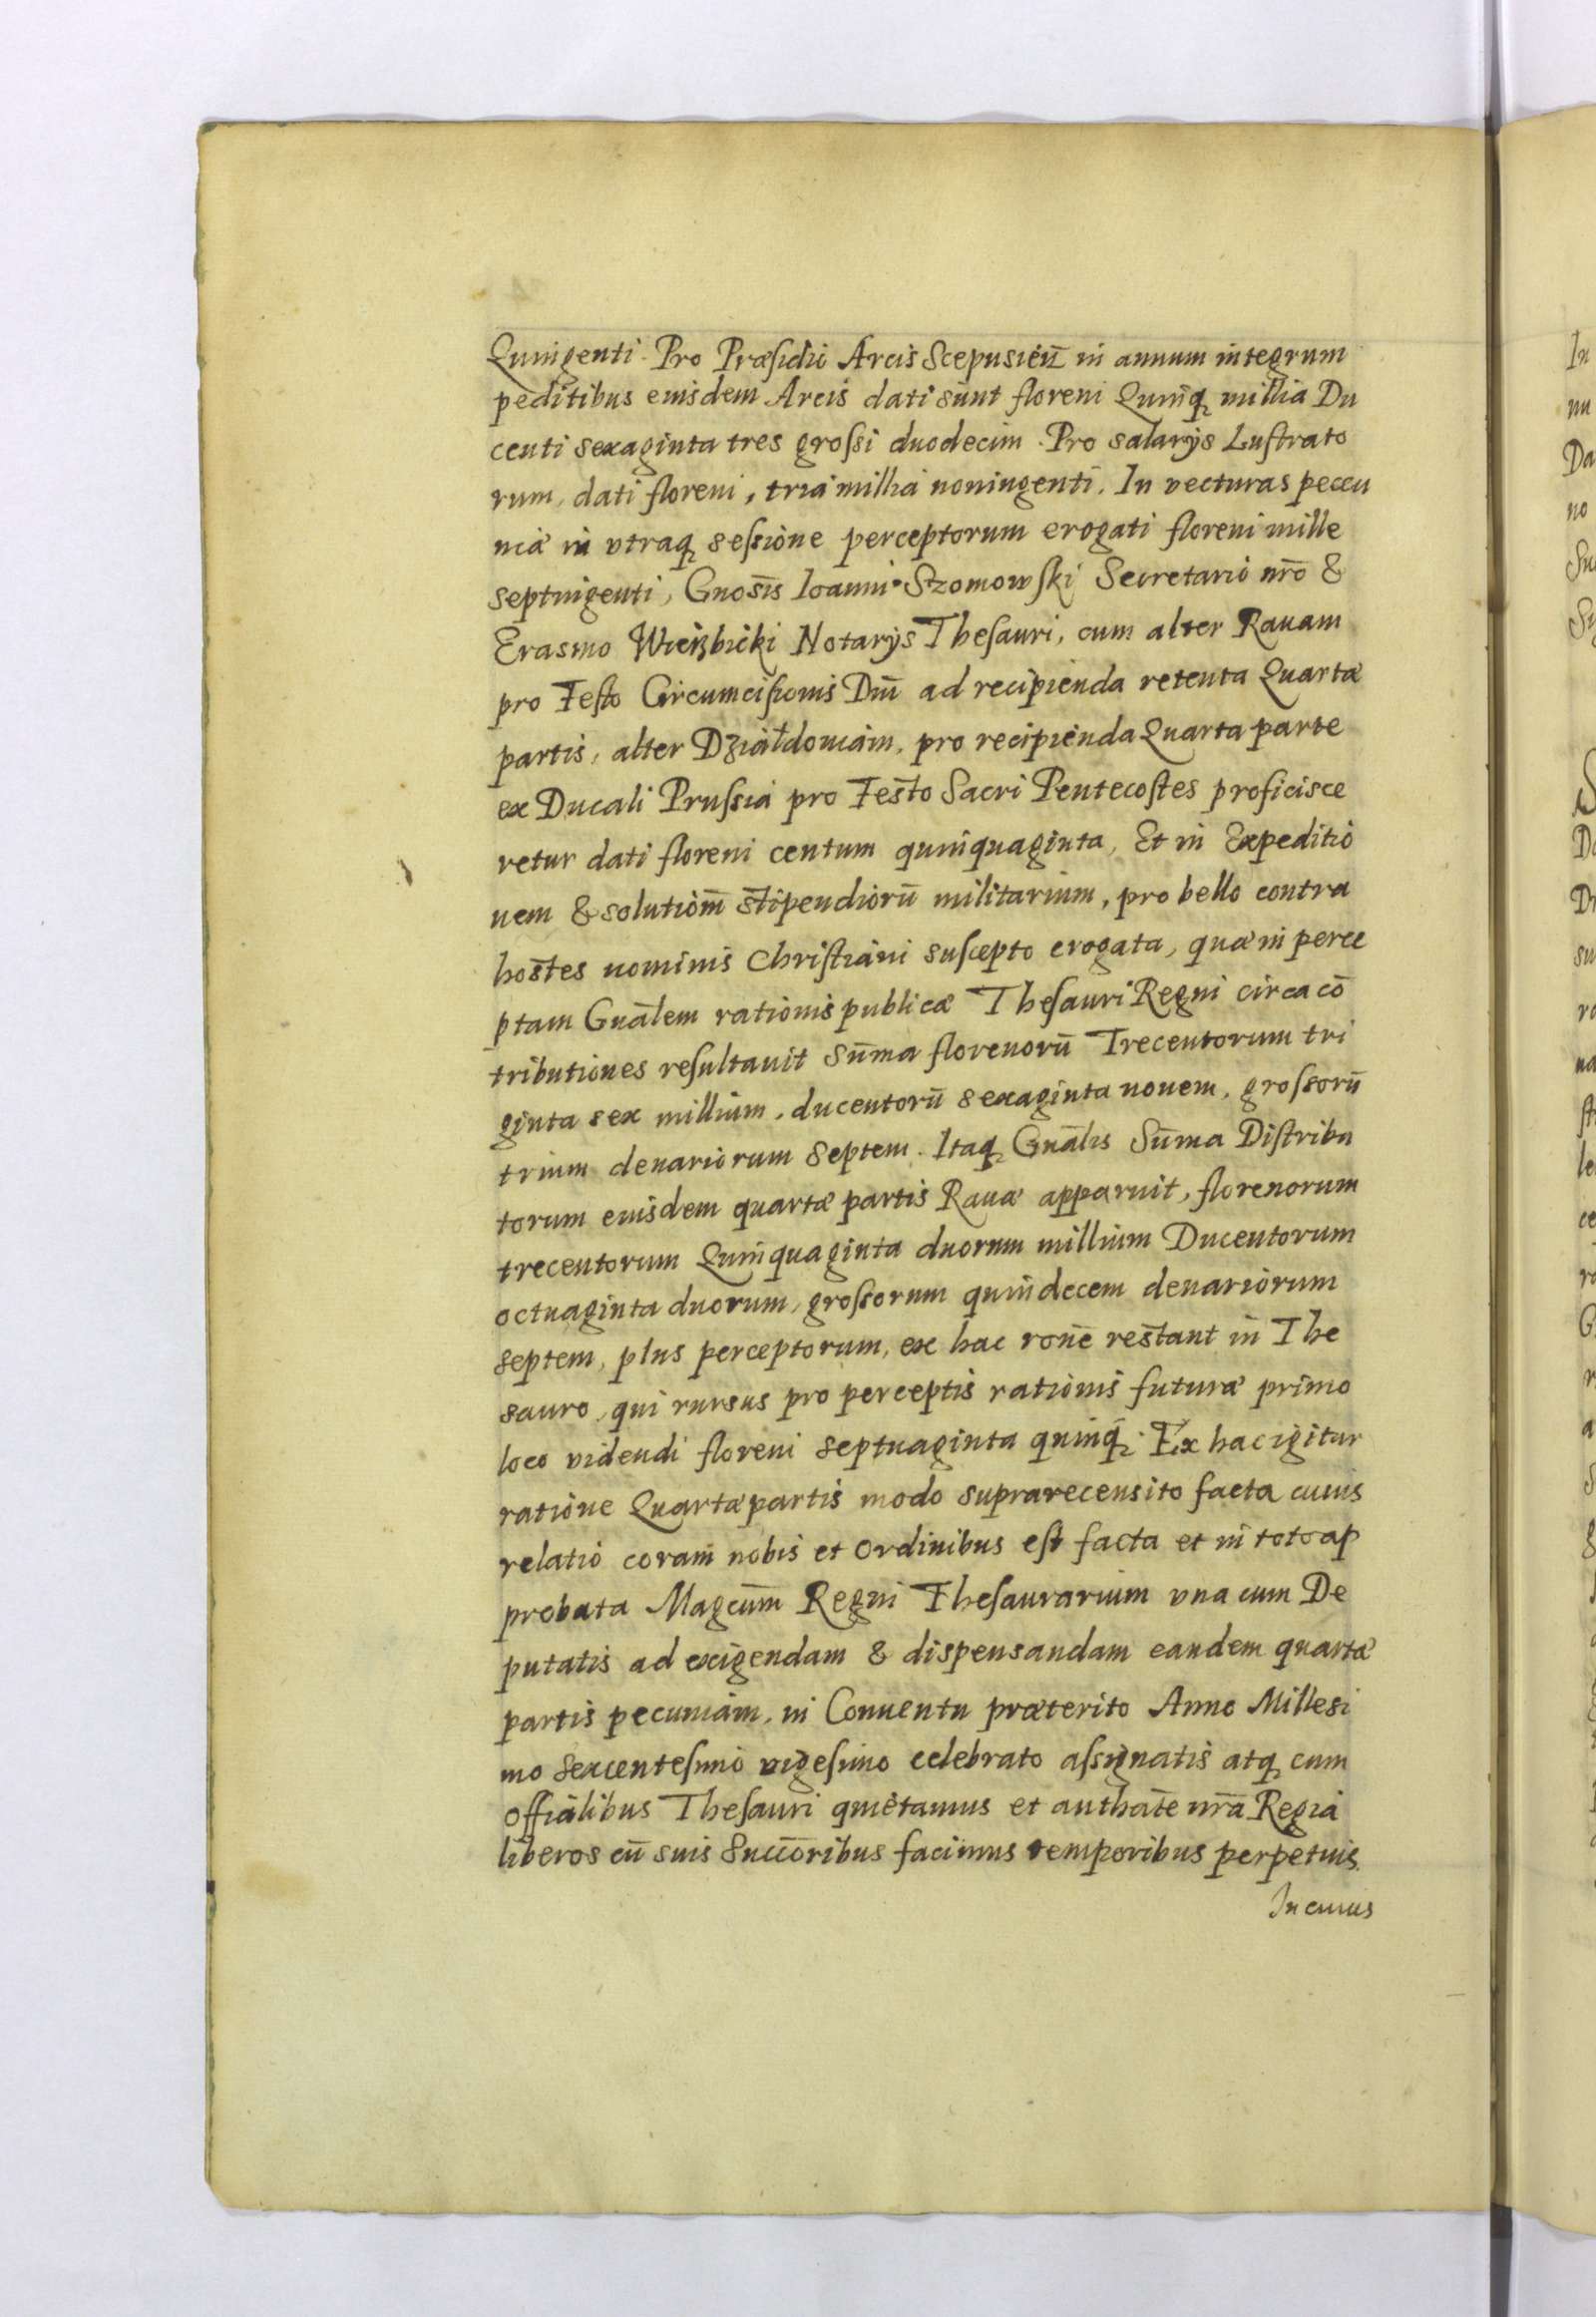 Quingenti. Pro Præsidio Arcis Scepusieñ in annum integrum
peditibus eiusdem Arcis dati sunt floreni Quinq millia Du
centi sexaginta tres grossi duodecim. Pro salarijs Lustrato
rum, dati floreni, tria millia noningenti. In vecturas peccu
niæ in vtraq sessione perceptorum erogati floreni mille
septingenti, Gnosis Ioanni Szomowski Secretario nro &
Erasmo Wierzbicki Notarijs Thesauri, cum alter Rauam
pro Festo Circumcisionis Dni ad recipienda retenta Quartæ
partis, alter Działdouiam, pro recipienda Quarta parte
ex Ducali Prussia pro Festo Sacri Pentecostes proficisce
retur dati floreni centum quinquaginta, Et in Expeditio
nem & solutiom̄ stipendiorū militarium, pro bello contra
hostes nominis Christiani suscepto erogata, quæ in perce
ptam Gnālem rationis publicæ Thesauri Regni circa cō
tributiones resultauit Sūma florenorū Trecentorum tri
ginta sex millium, ducentorū sexaginta nouem, grossorū
trium denariorum septem. Itaq Gnālis Sūma Distribu
torum eiusdem quartæ partis Rauæ apparuit, florenorum
trecentorum Quinquaginta duorum millium Ducentorum
octuaginta duorum, grossorum quindecem denariorum
septem, plus perceptorum, ex hac ronē restant in The
sauro, qui rursus pro perceptis rationis futuræ primo
loco videndi floreni septuaginta quinq. Ex hac igitur
ratione Quartæ partis modo suprarecensito facta cuius
relatio coram nobis et Ordinibus est facta et in toto ap
probata Magcum̄ Regni Thesaurarium vna cum De
putatis ad exigendam & dispensandam eandem quartæ
partis pecuniam, in Conuentu præterito Anno Millesi
mo sexcentesimo vigesimo celebrato assignatis atq cum
offialibus Thesauri quietamus et authatē nrā Regia
liberos cū suis Succōribus facimus temporibus perpetuis.
In cuius